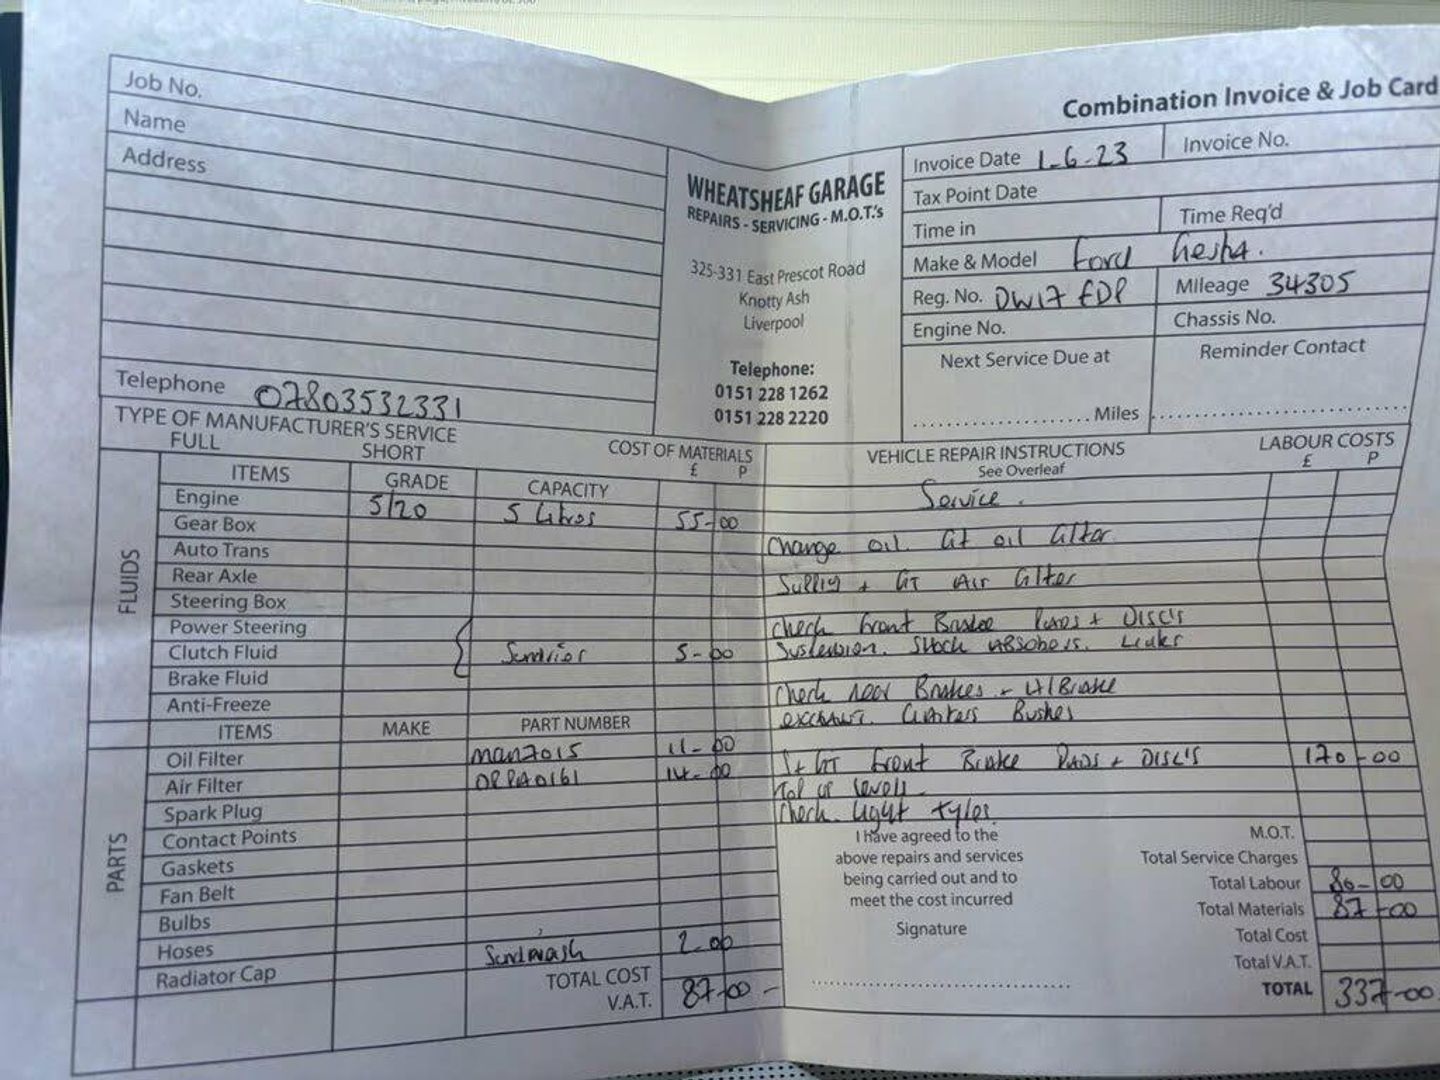 Combination Invoice & Job Card
Job No.
Name
Address
Telephone 07803532331
WHEATSHEAF GARAGE
REPAIRS - SERVICING - M.O.T.'s
325-331 East Prescot Road
Knotty Ash
Liverpool
Telephone:
0151 228 1262
0151 228 2220
Invoice Date 1-6-23 Invoice No.
Tax Point Date
Time in Time Req'd
Make & Model Ford
Reg. No. DW17 EDP Mileage 34305
Engine No. Chassis No.
Next Service Due at Reminder Contact
Miles
TYPE OF MANUFACTURER'S SERVICE
FULL SHORT
COST OF MATERIALS
£ P
FLUIDS
ITEMS GRADE CAPACITY
Engine 5/20 5 Litres 55-00
Gear Box
Auto Trans
Rear Axle
Steering Box
Power Steering
Clutch Fluid Sundries 5-00
Brake Fluid
Anti-Freeze
PARTS
ITEMS MAKE PART NUMBER
Oil Filter 11-00
Air Filter 14-00
Spark Plug
Contact Points
Gaskets
Fan Belt
Bulbs
Hoses 2-00
Radiator Cap
TOTAL COST
V.A.T. 87-00 -
VEHICLE REPAIR INSTRUCTIONS
See Overleaf
LABOUR COSTS
£ P
Service.
Change oil. fit oil filter
Supply + fit Air filter
Check front Brake Pads + Disc's
Suspension. Shock Absobers. Leaks
Check rear Brakes + H/Brake
exhaust. Bushes
S + fit front Brake Pads + Disc's 170-00
Top up levels.
Check. Light tyres.
I have agreed to the
above repairs and services
being carried out and to
meet the cost incurred
Signature
M.O.T.
Total Service Charges
Total Labour 80-00
Total Materials 87-00
Total Cost
Total V.A.T.
TOTAL 337-00